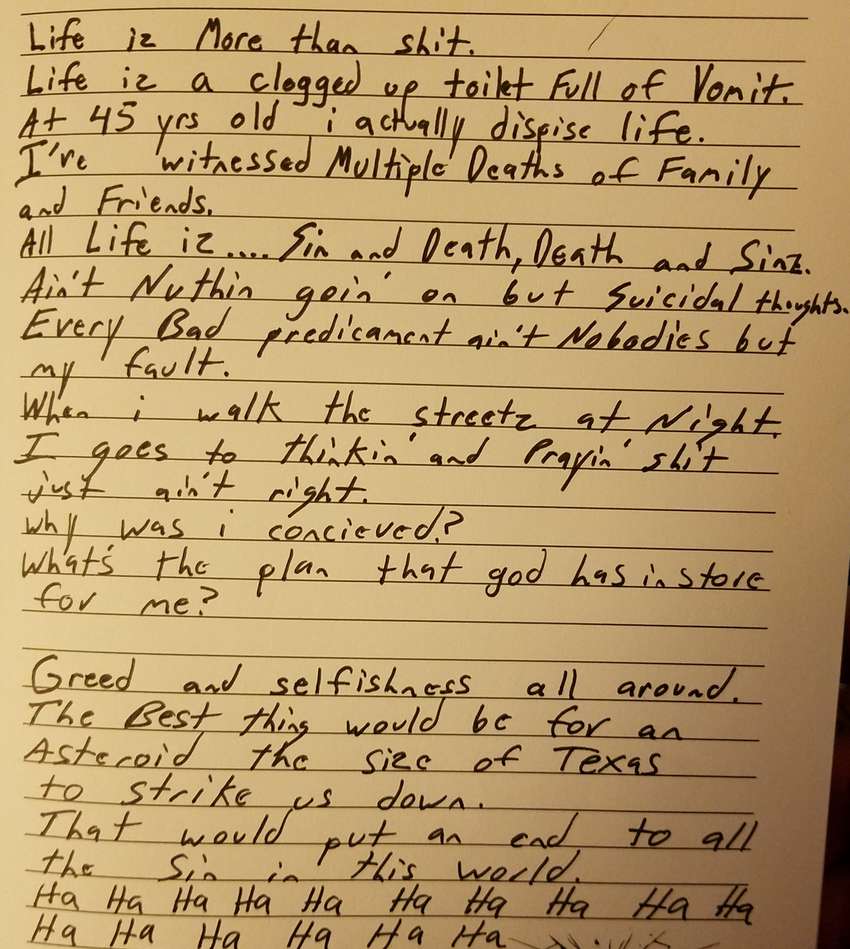 Life iz More than shit.
Life iz a clogged up toilet Full of Vomit.
At 45 yrs old i actually dispise life.
I've witnessed Multiple Deaths of Family
and Friends.
All Life iz.... Sin and Death, Death and Sinz.
Ain't Nuthin goin' on but Suicidal thoughts.
Every Bad predicament ain't Nobodies but
my fault.
When i walk the streetz at Night.
I goes to thinkin' and Prayin' shit
just ain't right.
why was i concieved?
What's the plan that god has in store
for me?
Greed and selfishness all around.
The Best thing would be for an
Asteroid the size of Texas
to strike us down.
That would put an end to all
the Sin in this world.
Ha Ha Ha Ha Ha Ha Ha Ha Ha Ha
Ha Ha Ha Ha Ha Ha